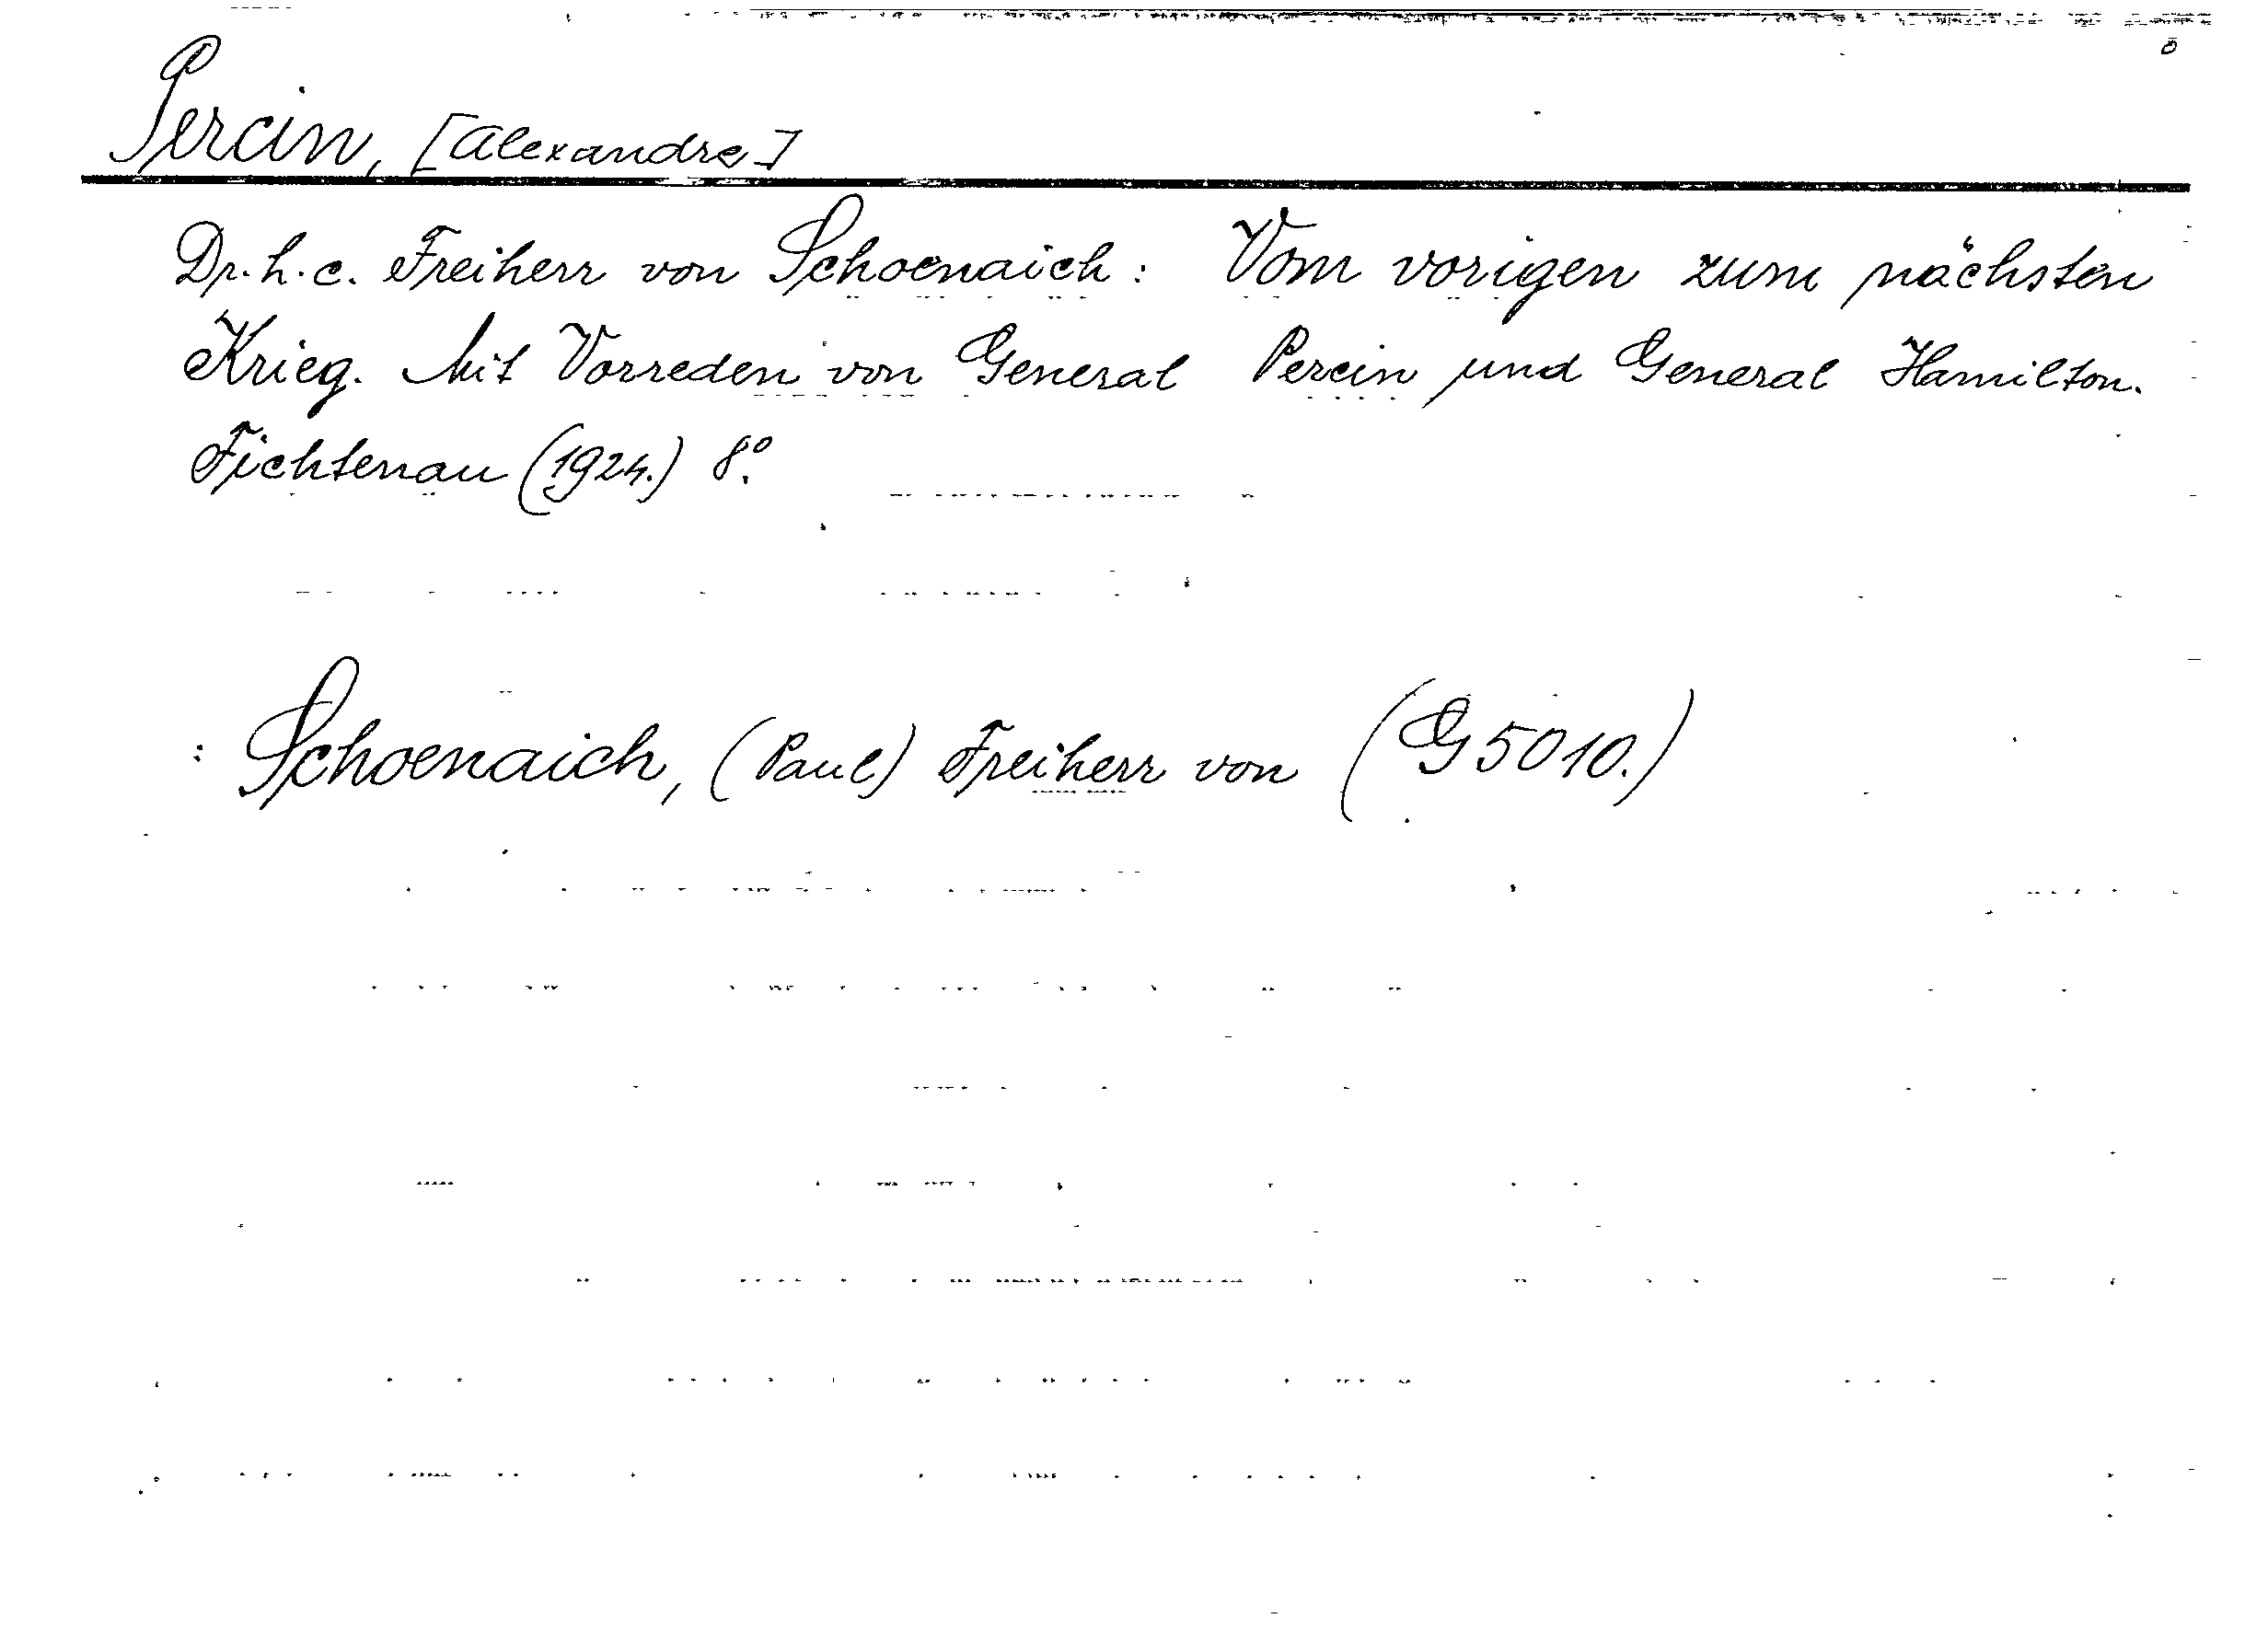 Percin, [Alexandre]
Dr. h. c. Freiherr von Schoenaich: Vom vorigen zum nächsten
Krieg. Mit Vorreden von General Percin und General Hamilton.
Fichtenau (1924.) 8°.
: Schoenaich, (Paul) Freiherr von (G 5010.)